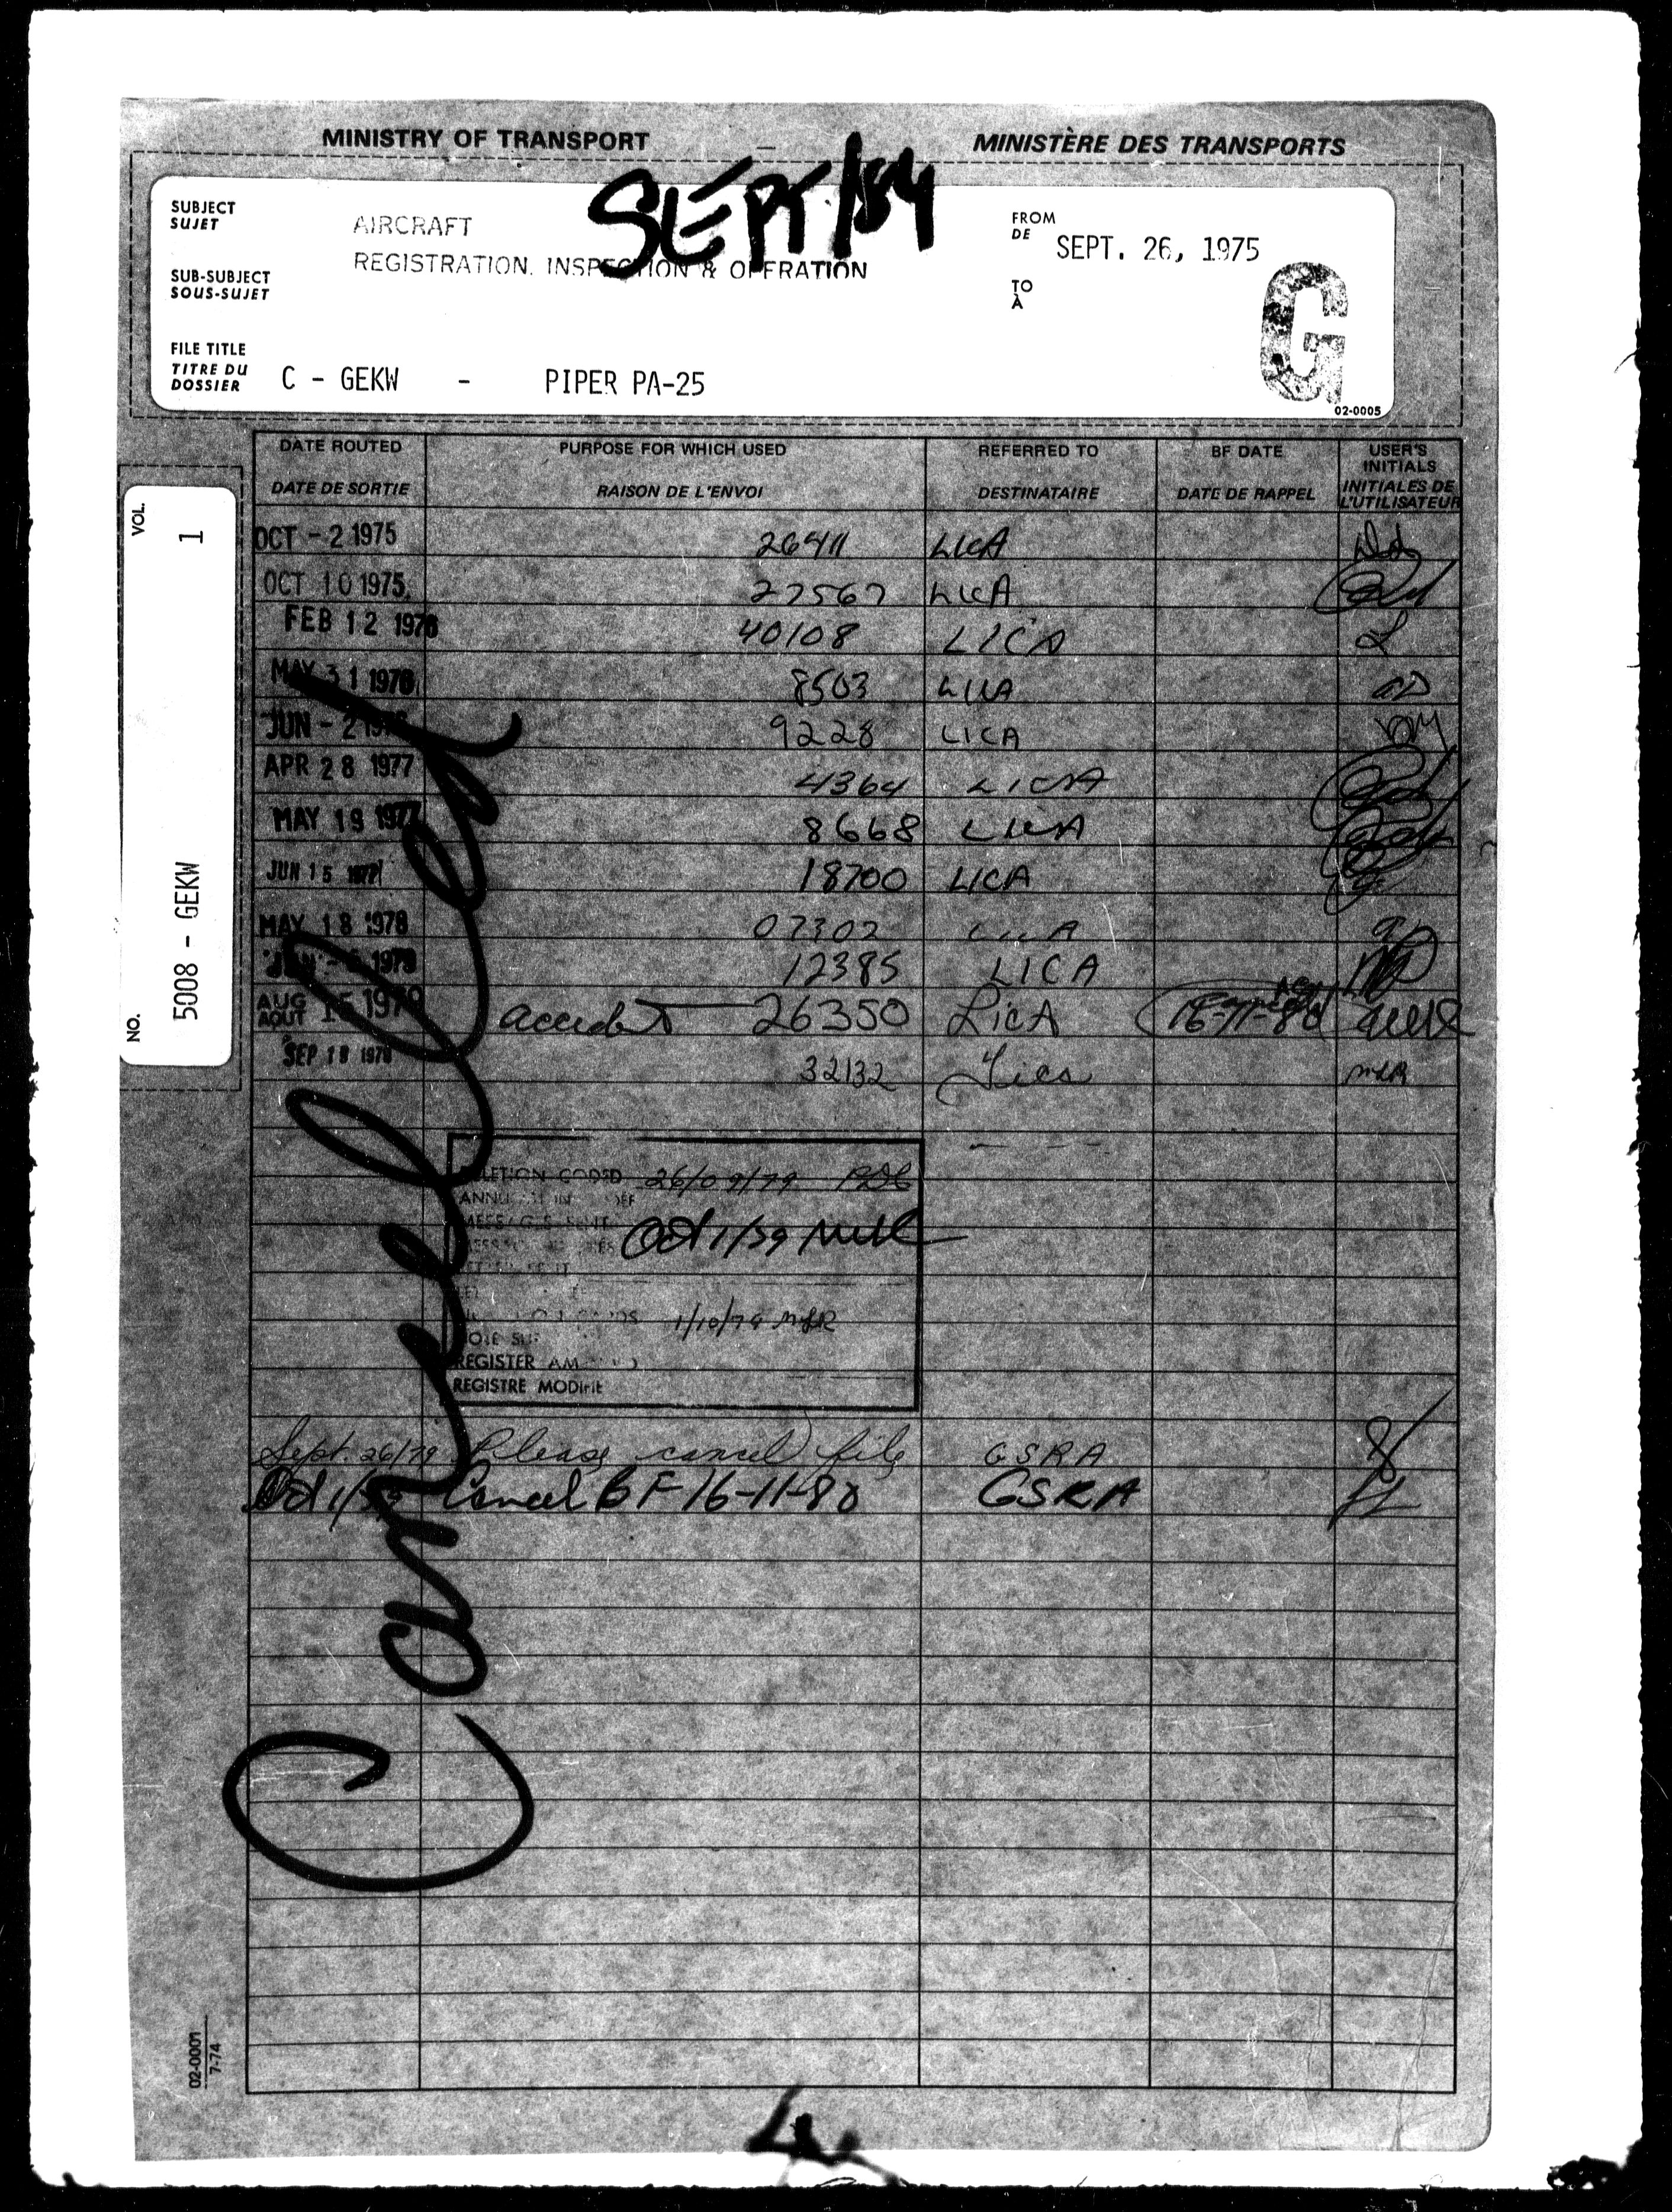 MINISTRY OF TRANSPORT MINISTÈRE DES TRANSPORTS
SEPT/84
SUBJECT
SUJET
AIRCRAFT
REGISTRATION, INSPECTION & OPERATION
SUB-SUBJECT
SOUS-SUJET
FROM
DE
SEPT. 26, 1975
TO
À
G
FILE TITLE
TITRE DU
DOSSIER
C - GEKW - PIPER PA-25
02-0005
VOL. 1
NO. 5008 - GEKW
DATE ROUTED PURPOSE FOR WHICH USED REFERRED TO BF DATE USER'S INITIALS
DATE DE SORTIE RAISON DE L'ENVOI DESTINATAIRE DATE DE RAPPEL INITIALES DE L'UTILISATEUR
OCT - 2 1975 26411 LICA
OCT 10 1975 27567 LICA
FEB 12 1976 40108 LICA
MAY 31 1976 8503 LICA
JUN - 2 1976 9228 LICA
APR 28 1977 4364 LICA
MAY 19 1977 8668 LICA
JUN 15 1977 18700 LICA
MAY 18 1978 07302 LICA
12385 LICA
AUG AOUT 15 1979 accident 26350 LICA 16-11-80
SEP 18 1979 32132 Lica MLR
Cancelled
DELETION CODED 26/09/79
MESSAGE SENT
Oct 1/79
1/10/79 MLR
REGISTER AMENDED
REGISTRE MODIFIÉ
Sept. 26/79 Please cancel file GSRA
Oct 1/79 Cancel BF 16-11-80 GSRA
02-0001
7-74